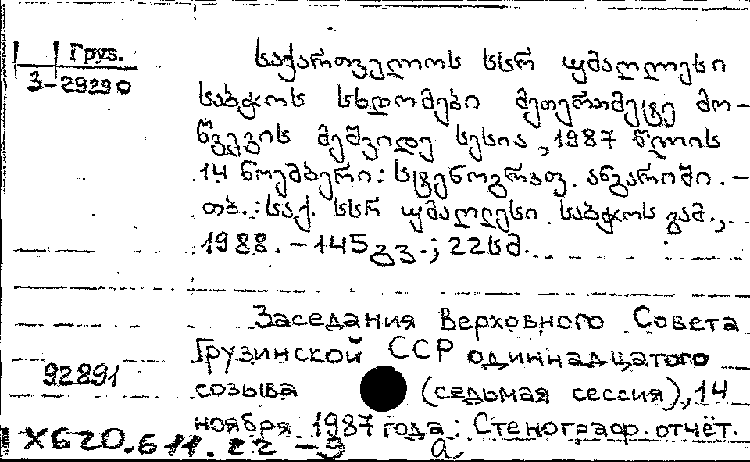 Груз.
3-29290
საქართველოს სსრ უმაღლესი
საბჭოს სხდომები მეთერთმეტე მო-
წვევის მეშვიდე სესია, 1987 წლის
14 ნოემბერი: სტენოგრაფ. ანგარიში. –
თბ.: საქ. სსრ უმაღლესი საბჭოს გამ.,
1988. – 145გვ.; 22სმ.
Заседания Верховного Совета
Грузинской ССР одиннадцатого
92891
созыва (седьмая сессия), 14
ноября 1987 года: Стенограф. отчёт.
Х620.611.22 – 3 а